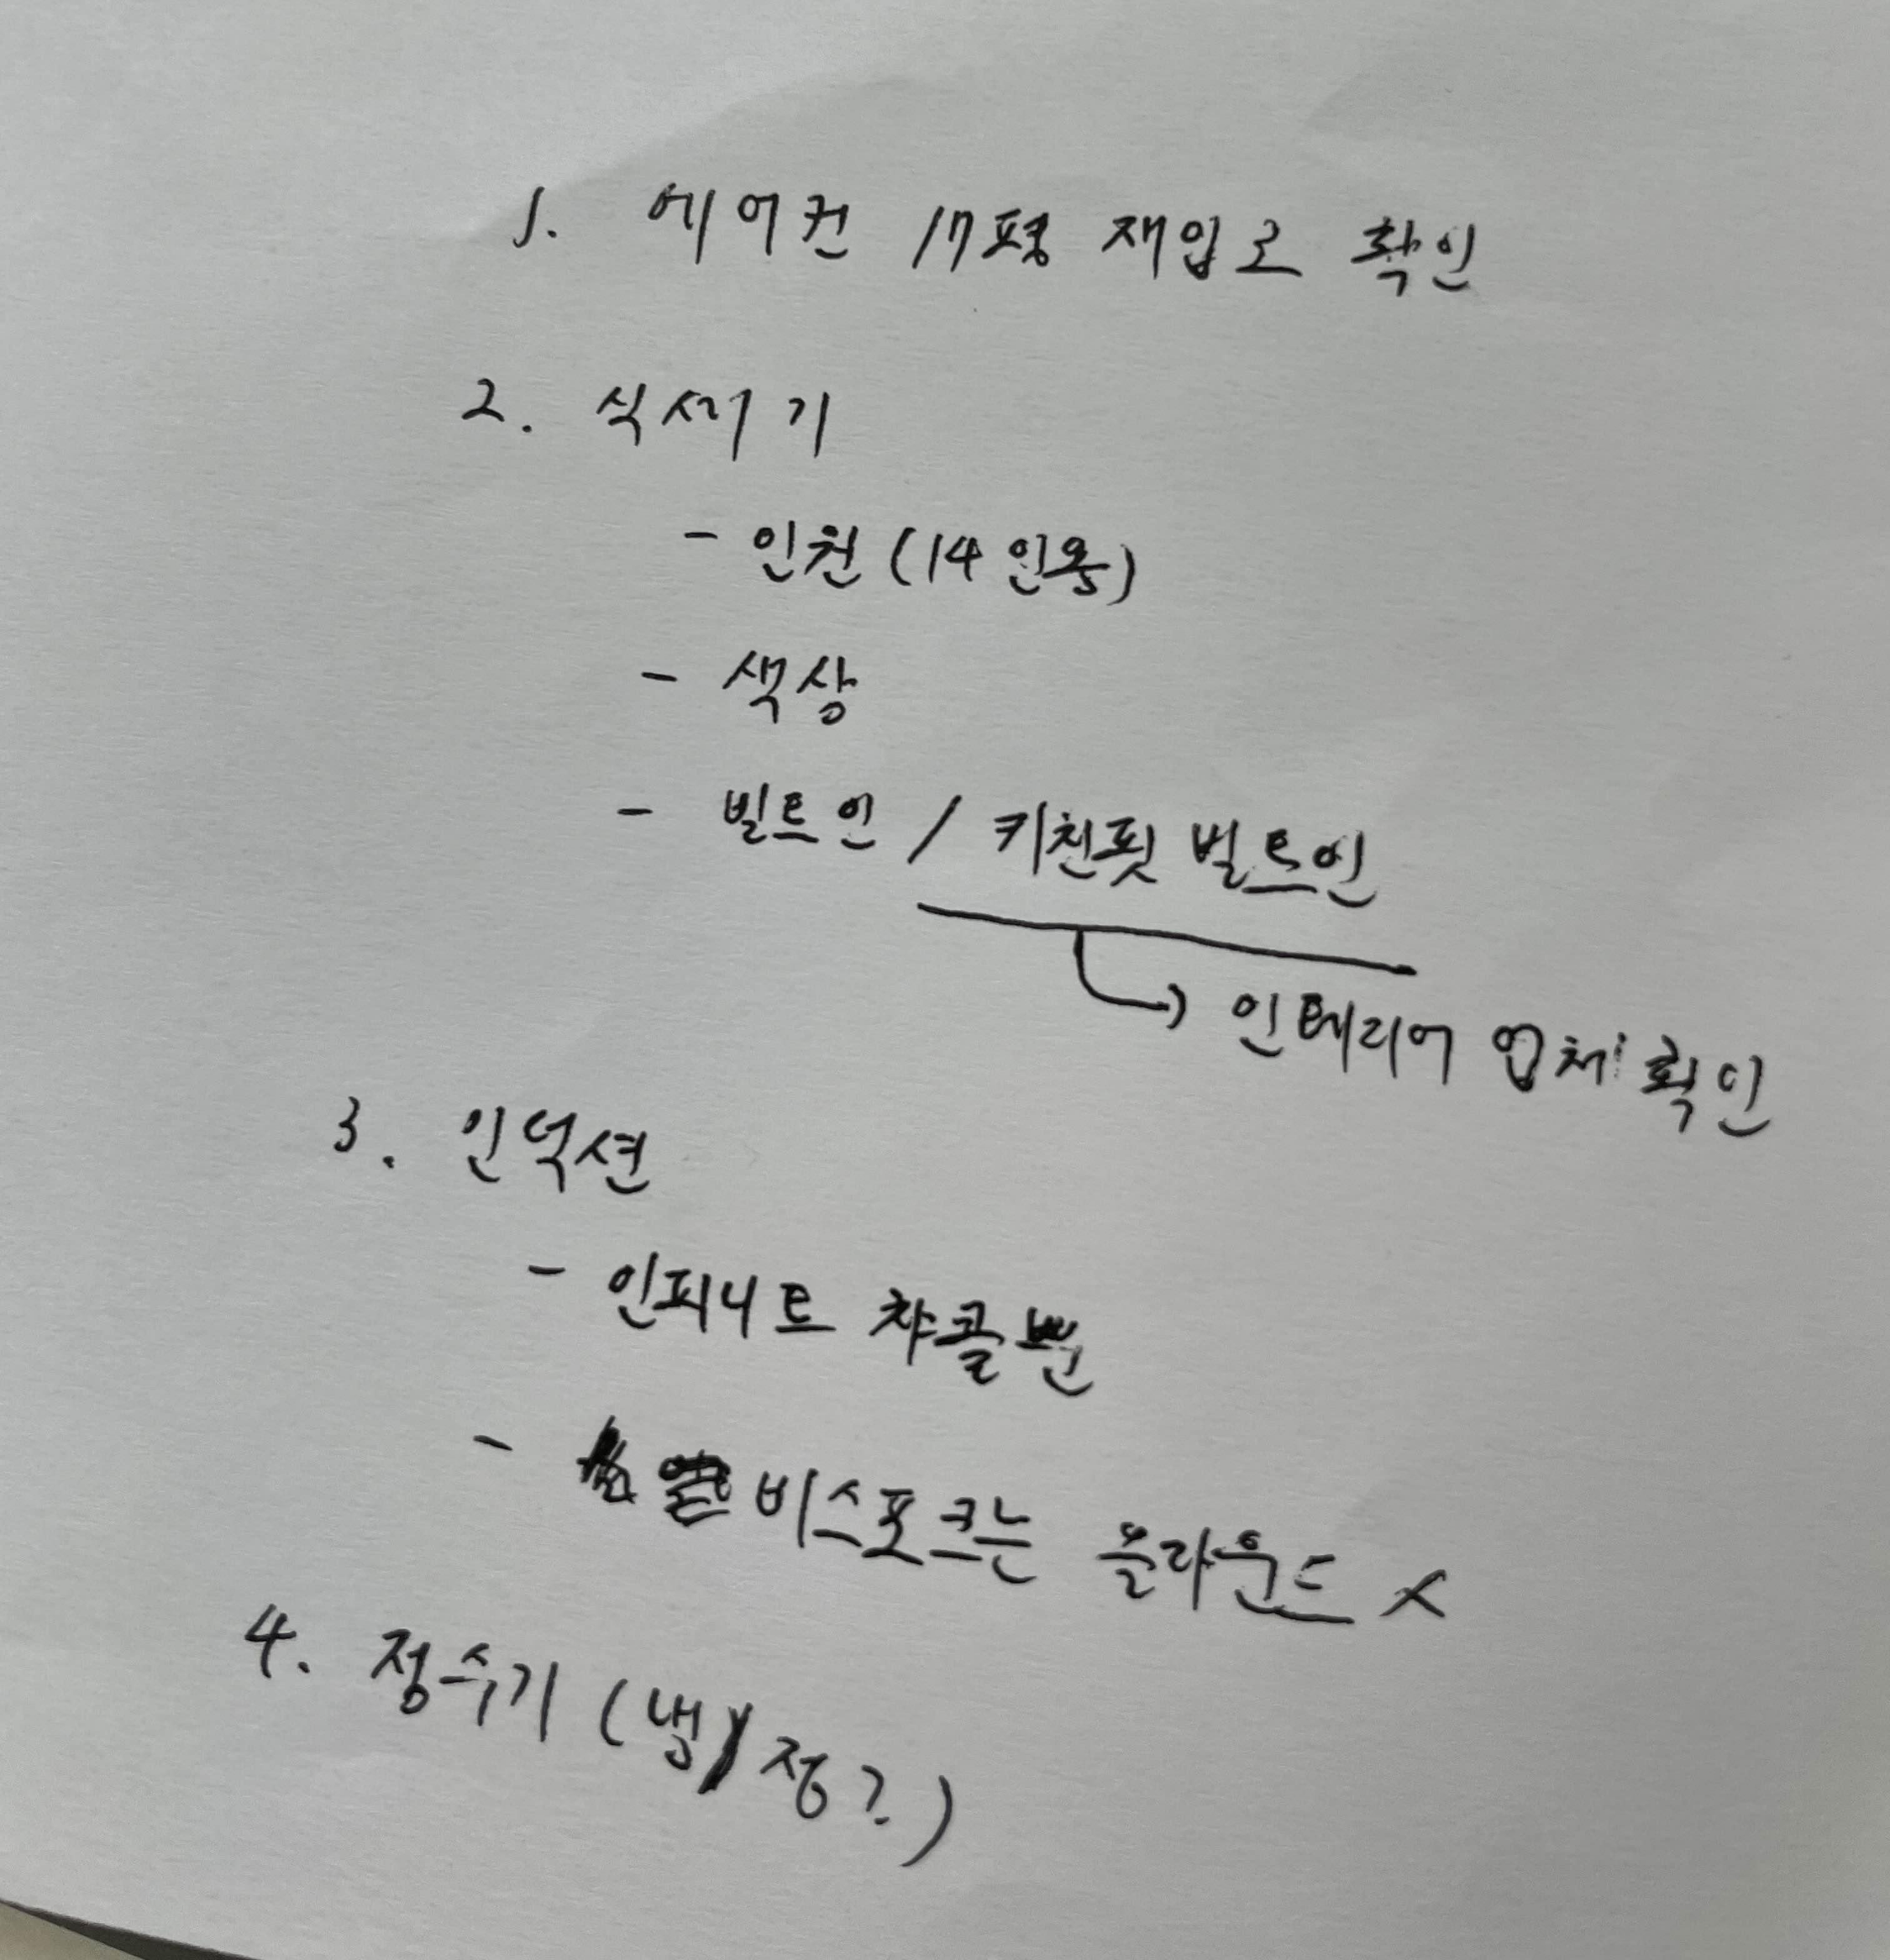 1. 에어컨 17평 재입고 확인
2. 식세기
- 인원 (14인용)
- 색상
- 빌트인 / 키친핏 빌트인
→ 인테리어 업체 확인
3. 인덕션
- 인피니트 차콜뿐
- 비스포크는 올라운드 X
4. 정수기 (냉/정?)